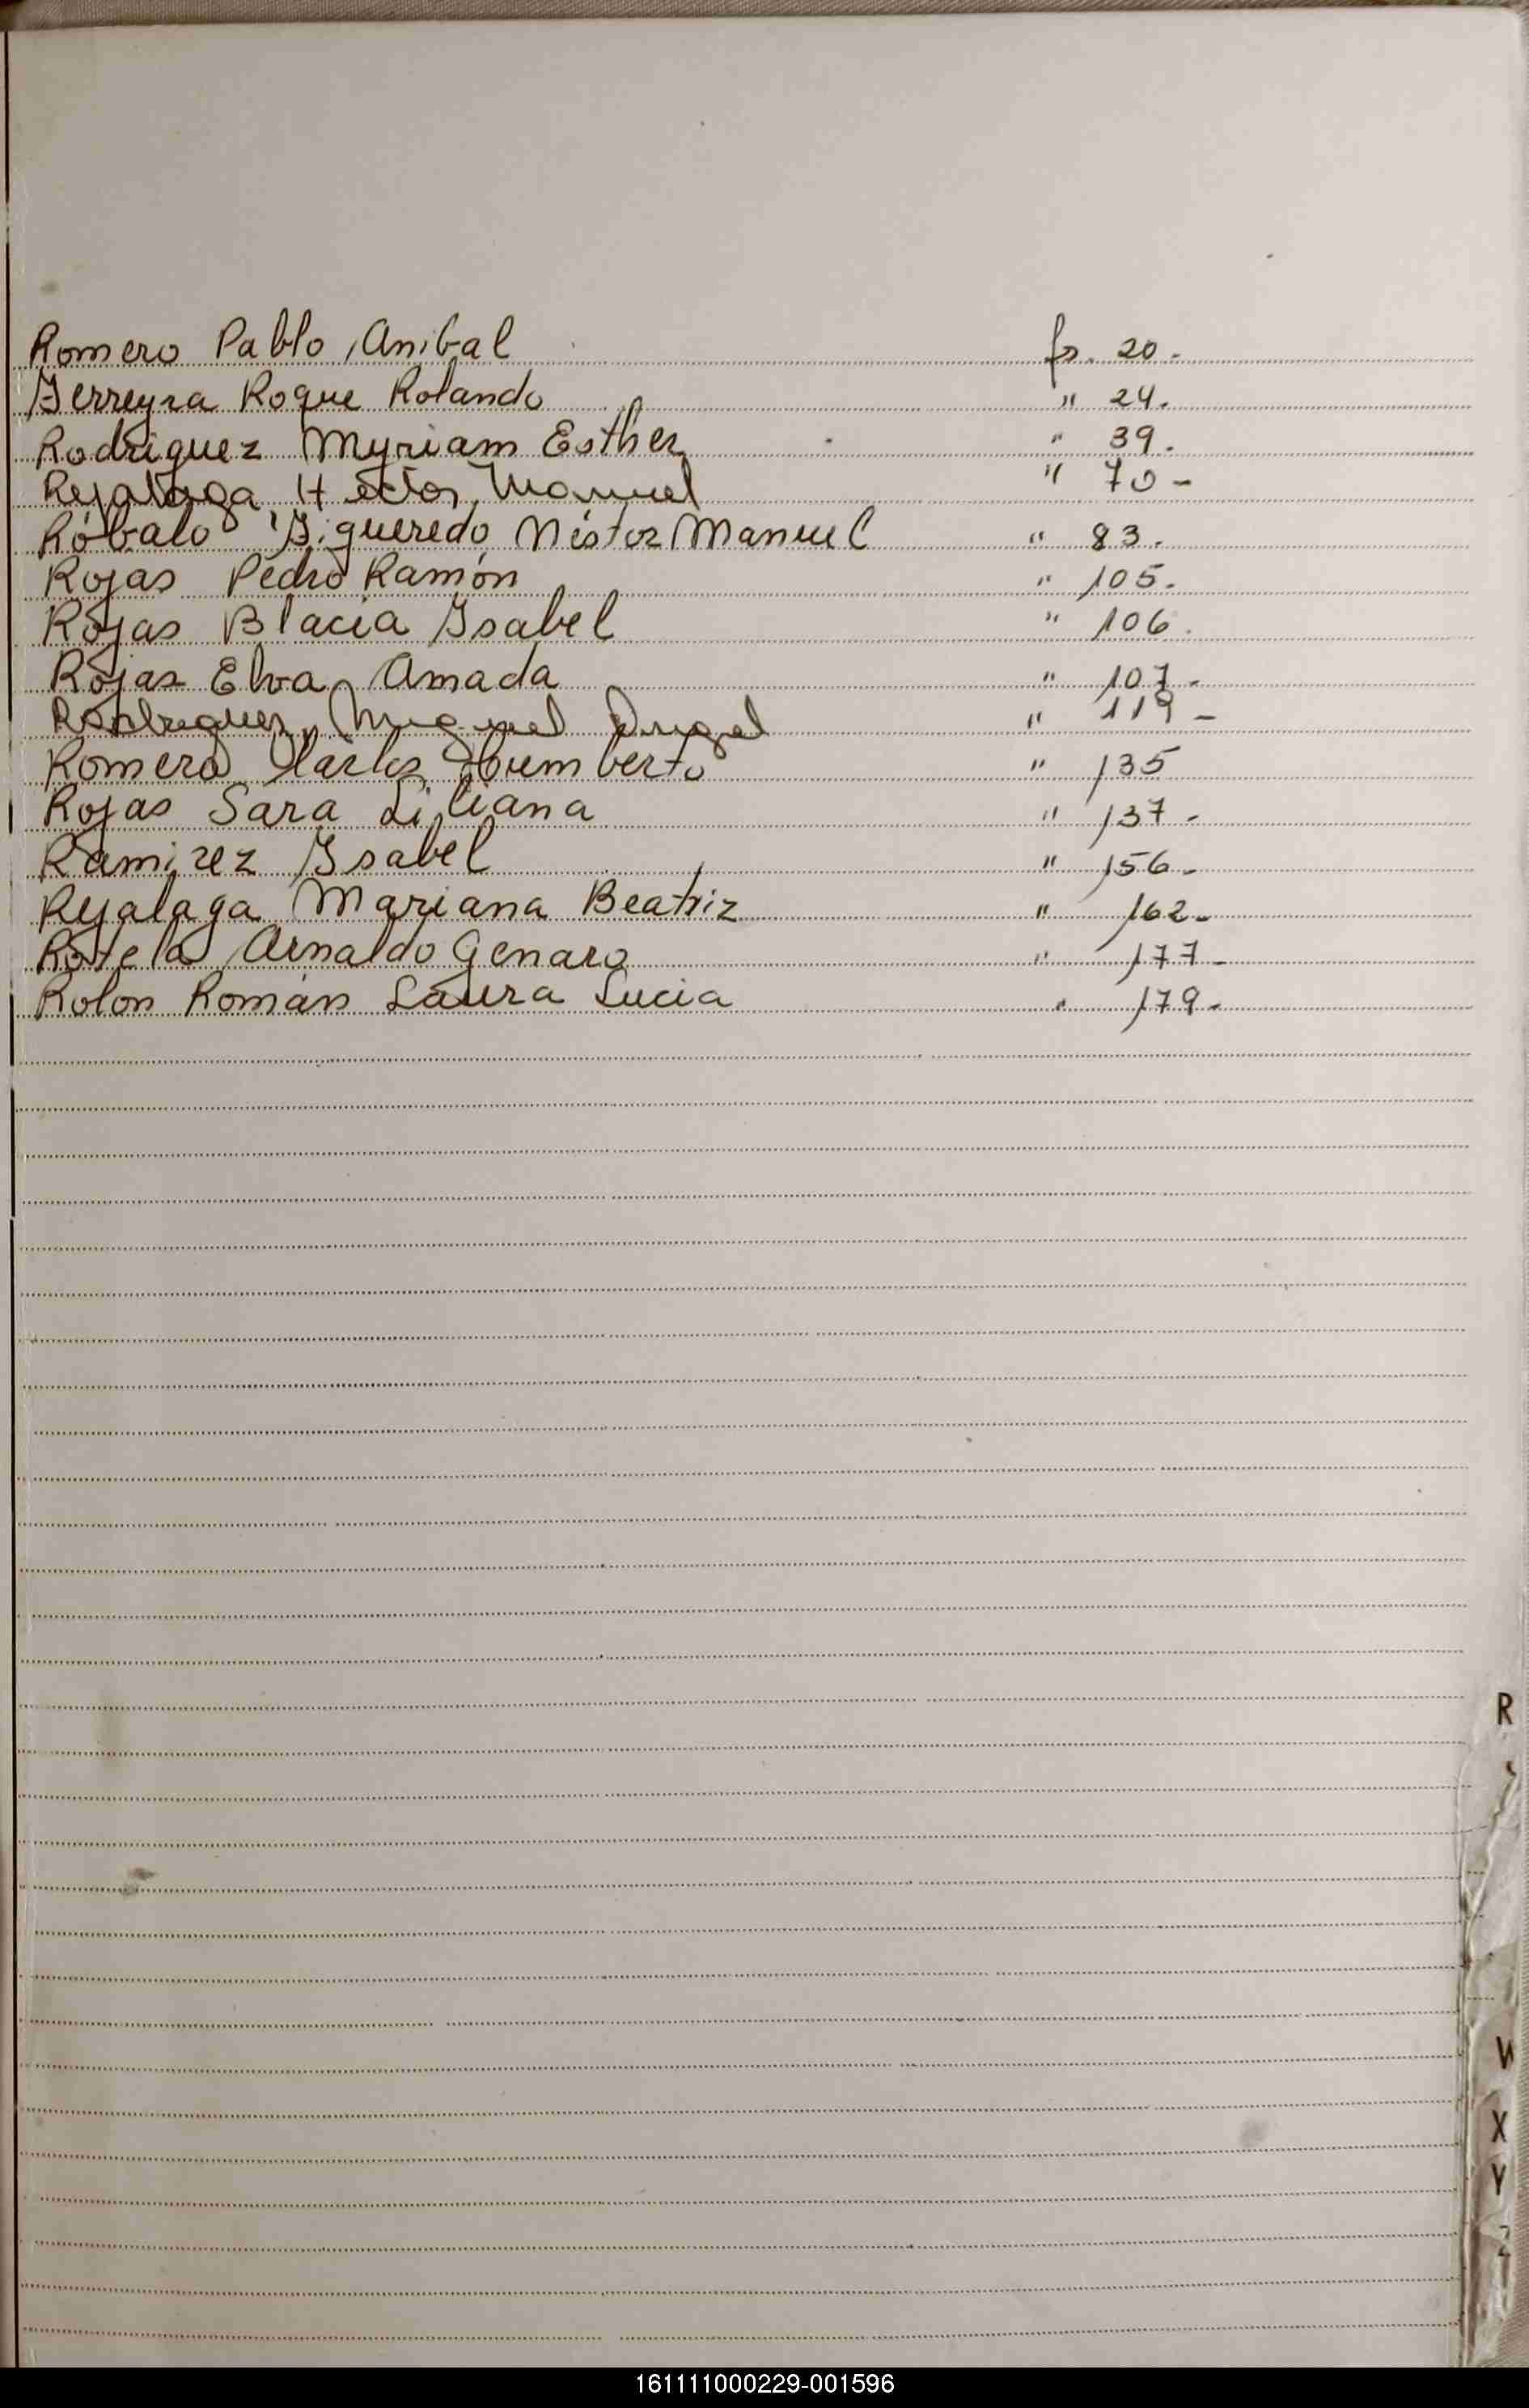 Romero Pablo Anibal fs. 20.
Ferreyra Roque Rolando " 24.
Rodriguez Myriam Esther " 39.
Rejalaga Hector Manuel " 70 -
Róbalo Figueredo Néstor Manuel " 83.
Rojas Pedro Ramón " 105.
Rojas Blacia Isabel " 106.
Rojas Elva Amada " 107 -
Rodriguez Miguel Angel " 119 -
Romero Carlos Humberto " 135
Rojas Sara Liliana " 137 -
Ramirez Isabel " 156 -
Rejalaga Mariana Beatriz " 162 -
Rotela Arnaldo Genaro " 177 -
Rolon Román Laura Lucia " 179 -
R
W
X
Y
Z
161111000229-001596